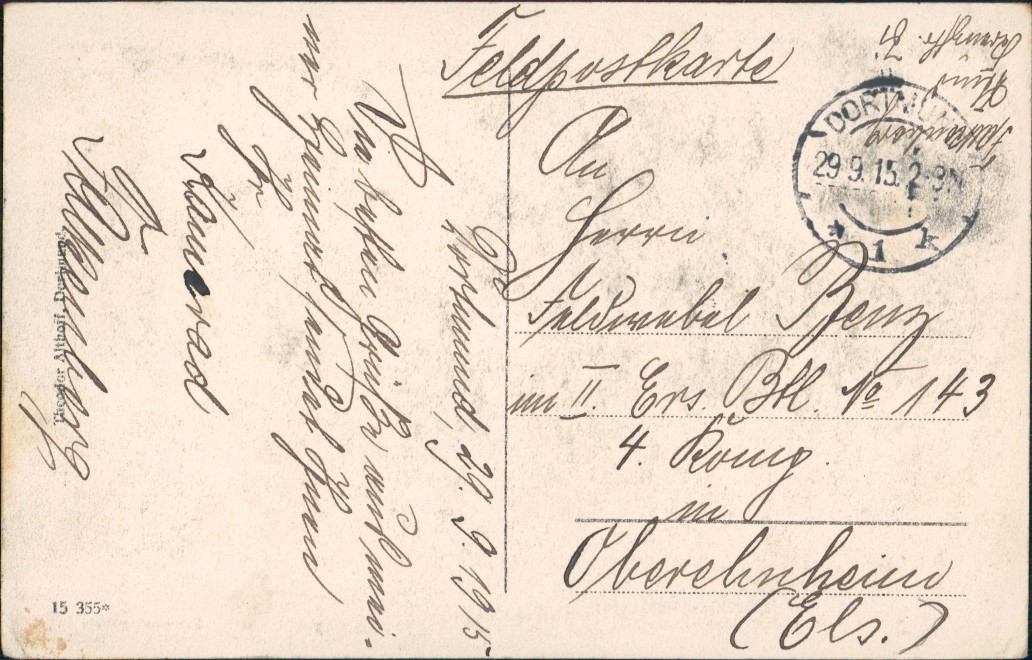 Feldpostkarte
An
Herrn
Feldwebel Benz
im II. Ers. Btl. No 143
4. Komp.
in
Oberehnheim
(Els.)
DORTMUND
29.9.15. 2-3N
* 1 k
Dortmund, 29. 9. 1915
Die besten Grüße aus mei-
ner Heimat sendet Ihnen
Ihr
Kamerad
Theodor Althoff, Dortmund.
15 355*